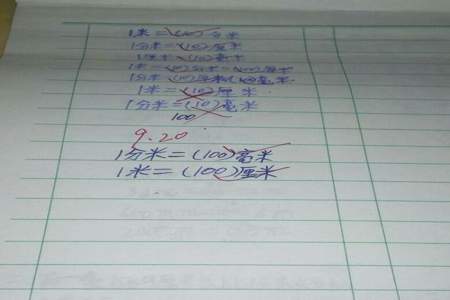 1米=(10)分米
1分米=(10)厘米
1厘米=(10)毫米
1米=(10)分米=(100)厘米
1分米=(10)厘米=(100)毫米
1米=(10)厘米
1分米=(10)毫米
100
9.20
1分米=(100)毫米
1米=(100)厘米